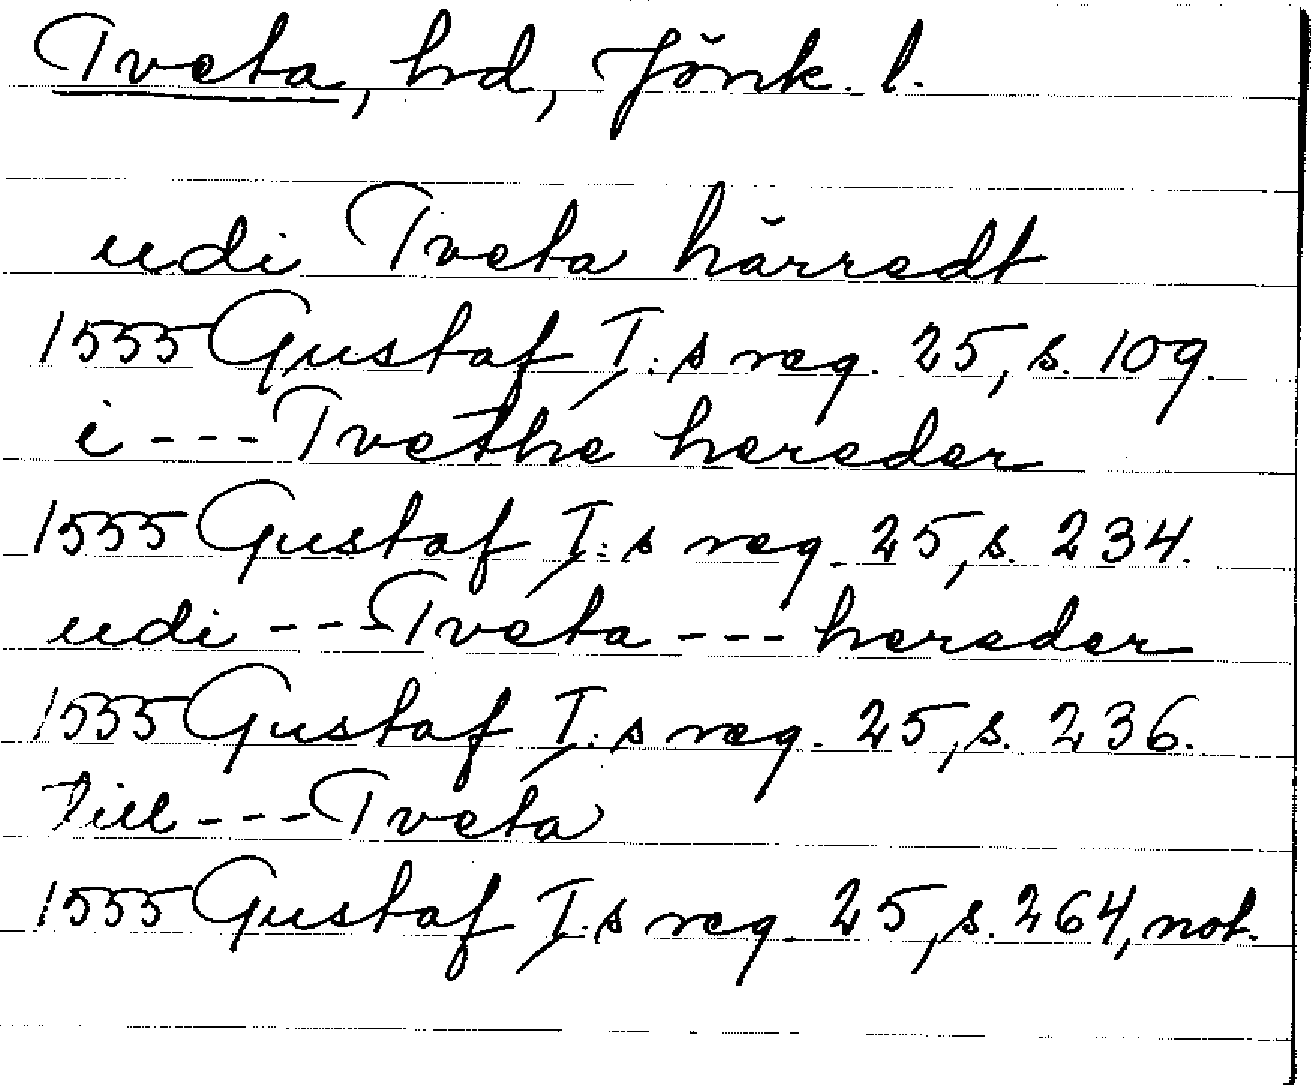 Tveta, hd, Jönk. l.
udi Tveta härredt
1555 Gustaf I:s reg. 25, s. 109.
i --- Tvethe hereder
1555 Gustaf I:s reg. 25, s. 234.
udi --- Tveta --- hereder
1555 Gustaf I:s reg. 25, s. 236.
Till --- Tveta
1555 Gustaf I:s reg. 25, s. 264, not.